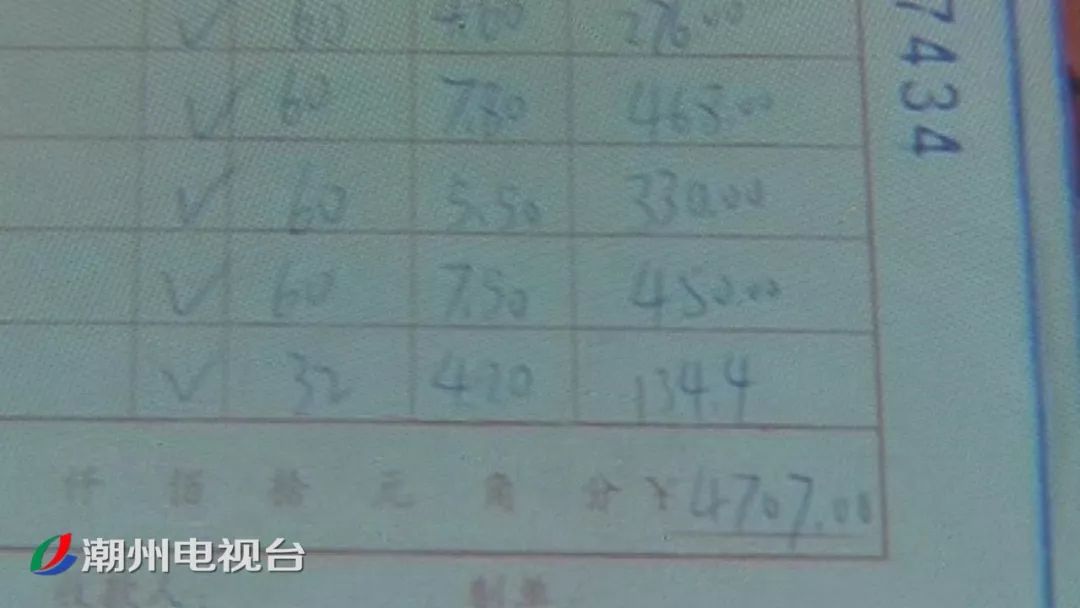 ✓ 60 4.60 276.00
✓ 60 465.00
✓ 60 5.50 330.00
✓ 60 7.50 450.00
✓ 32 4.20 134.4
仟 佰 拾 元 角 分 ¥ 4707.00
7434
潮州电视台
收款人:
制单: